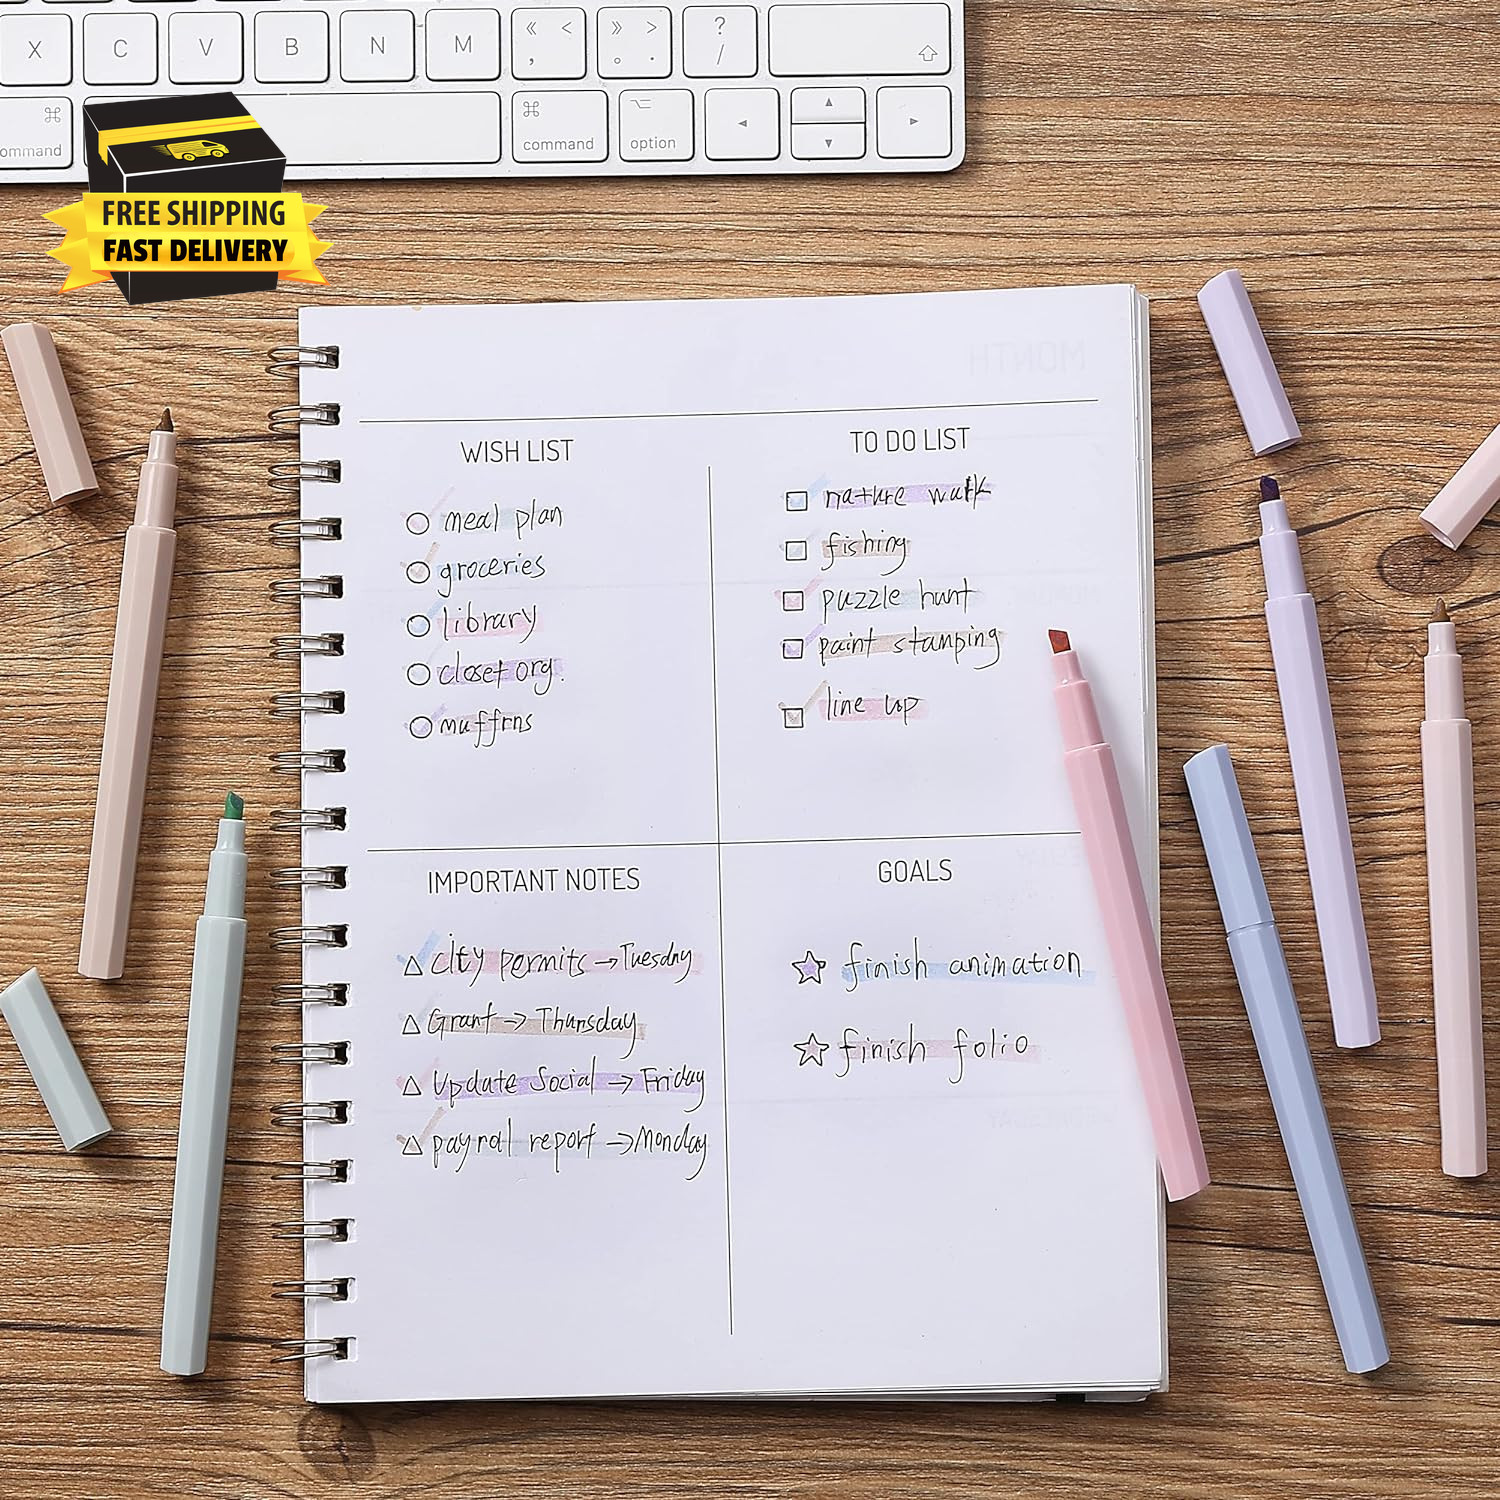 X C V B N M « < , » > 。 . ? /
⌘ command ⌘ command ⌥ option
FREE SHIPPING
FAST DELIVERY
MONTH
WISH LIST
meal plan
groceries
library
closet org.
muffrns
TO DO LIST
nature walk
fishing
puzzle hunt
paint stamping
line up
IMPORTANT NOTES
city permits → Tuesday
Grant → Thursday
Update Social → Friday
payrol report → Monday
GOALS
finish animation
finish folio